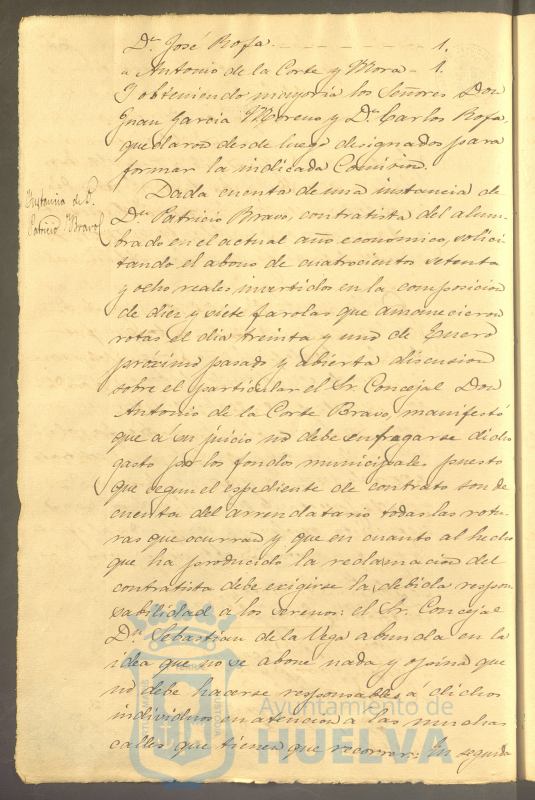 Dn. José Rofa - - - - - - - - 1.
" Antonio de la Corte y Mora - 1.
Y obteniendo mayoria los Señores Don
Juan Garcia Moreno y Dn. Carlos Rofa,
quedaron desde luego designados para
formar la indicada Comision.
Instancia de D.
Patricio Bravo
Dada cuenta de una instancia de
Dn. Patricio Bravo, contratista del alum-
brado en el actual año económico, solici-
tando el abono de cuatrocientos setenta
y ocho reales invertidos en la composicion
de diez y siete farolas que amanecieron
rotas el dia treinta y uno de Enero
próximo pasado y abierta discusion
sobre el particular el Sr. Concejal Don
Antonio de la Corte Bravo, manifestó
que á su juicio no debe sufragarse dicho
gasto por los fondos municipales puesto
que segun el espediente de contrato son de
cuenta del arrendatario todas las rotu-
ras que ocurran y que en cuanto al hecho
que ha producido la reclamacion del
contratista debe exigirse la debida respon-
sabilidad á los serenos: el Sr. Concejal
Dn. Sebastian de la Vega abunda en la
idea que no se abone nada y opina que
no debe hacerse responsables á dichos
individuos en atencion a las muchas
calles que tienen que recorrer: En seguida
Ayuntamiento de
HUELVA